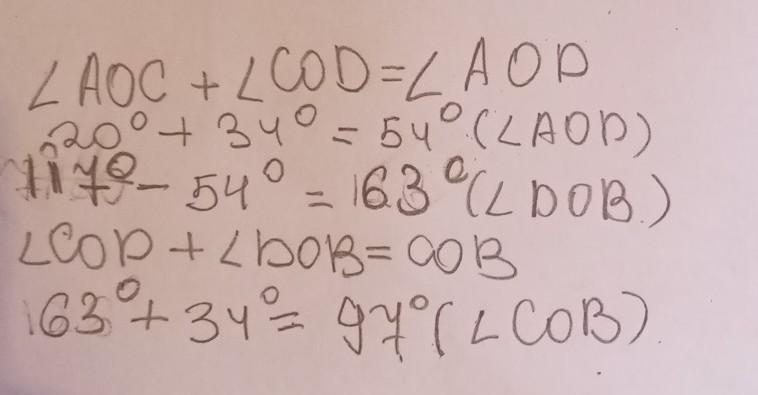 ∠AOC + ∠COD = ∠AOD
20° + 34° = 54° (∠AOD)
117° - 54° = 163° (∠DOB)
∠COD + ∠DOB = COB
163° + 34° = 97° (∠COB)